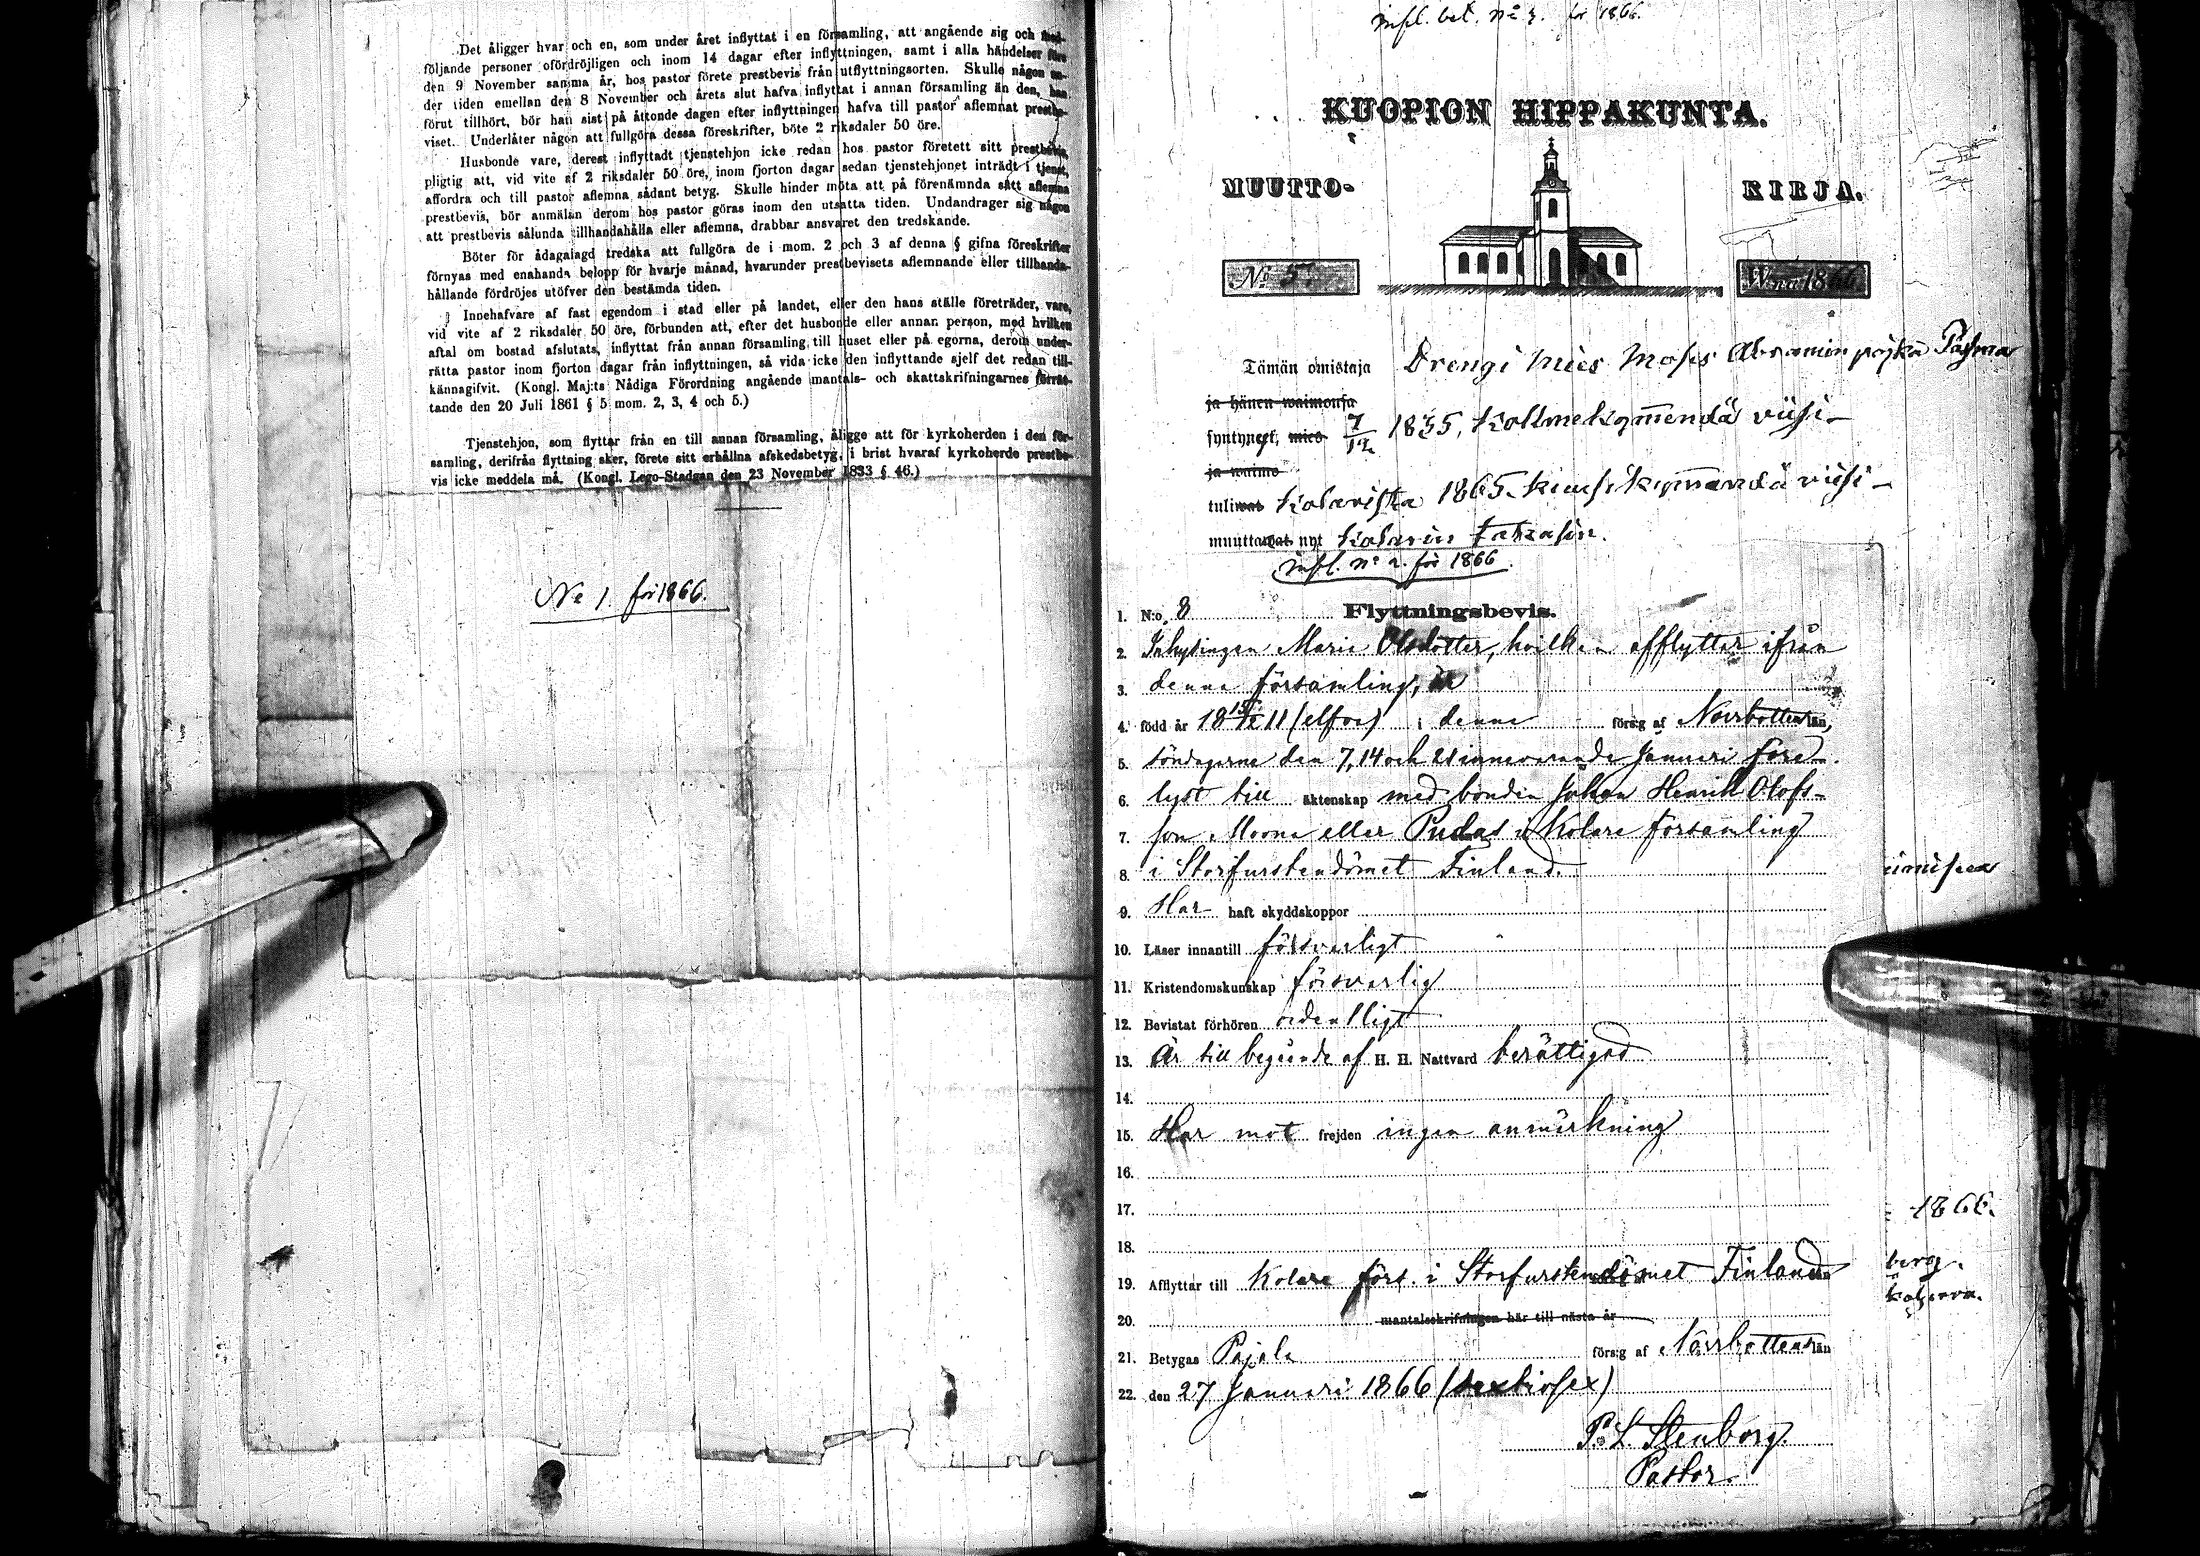 Det åligger hvar och en, som under året inflyttat i en församling, att angående sig och med-
följande personer ofördröjligen och inom 14 dagar efter inflyttningen, samt i alla händelser före
den 9 November samma år, hos pastor förete prestbevis från utflyttningsorten. Skulle någon un-
der tiden emellan den 8 November och årets slut hafva inflyttat i annan församling än den, han
förut tillhört, bör han sist på åttonde dagen efter inflyttningen hafva till pastor aflemnat prestbe-
viset. Underlåter någon att fullgöra dessa föreskrifter, böte 2 riksdaler 50 öre.
Husbonde vare, derest inflyttadt tjenstehjon icke redan hos pastor företett sitt prestbevis,
pligtig att, vid vite af 2 riksdaler 50 öre, inom fjorton dagar sedan tjenstehjonet inträdt i tjenst,
affordra och till pastor aflemna sådant betyg. Skulle hinder möta att på förenämnda sätt aflemna
prestbevis, bör anmälan derom hos pastor göras inom den utsatta tiden. Undandrager sig någon
att prestbevis sålunda tillhandahålla eller aflemna, drabbar ansvaret den tredskande.
Böter för ådagalagd tredska att fullgöra de i mom. 2 och 3 af denna § gifna föreskrifter
förnyas med enahanda belopp för hvarje månad, hvarunder prestbevisets aflemnande eller tillhanda-
hållande fördröjes utöfver den bestämda tiden.
Innehafvare af fast egendom i stad eller på landet, eller den hans ställe företräder, vare,
vid vite af 2 riksdaler 50 öre, förbunden att, efter det husbonde eller annan person, med hvilken
aftal om bostad afslutats, inflyttat från annan församling till huset eller på egorna, derom under-
rätta pastor inom fjorton dagar från inflyttningen, så vida icke den inflyttande sjelf det redan till-
kännagifvit. (Kongl. Maj:ts Nådiga Förordning angående mantals- och skattskrifningarnes förrät-
tande den 20 Juli 1861 § 5 mom. 2, 3, 4 och 5.)
Tjenstehjon, som flyttar från en till annan församling, åligge att för kyrkoherden i den för-
samling, derifrån flyttning sker, förete sitt erhållna afskedsbetyg, i brist hvaraf kyrkoherde prestbe-
vis icke meddela må. (Kongl. Lego-Stadgan den 23 November 1833 § 46.)
No 1. för 1866.
infl. bet. No 3. för 1866.
KUOPION HIPPAKUNTA.
MUUTTO- KIRJA.
No 5. W:na 1866
Tämän omistaja Drengi mies Moses Abramin pojka
ja hänen waimonsa
syntynyt, mies 7/12 1835, kolmekymmendä viisi
ja waimo
tuliwat Kolarista 1865 kuusikymmendä viisi
muuttawat nyt Kolarin takasin.
infl. No 2. för 1866
1. N:o 8 Flyttningsbevis.
2. Inhysingen Maria Olsdotter, hvilken afflyttar ifrån
3. denna församling, är
4. född år 18 15/12 11 (elfva) i denna förs:g af Norrbottens län,
5. söndagarne den 7, 14 och 21 innevarande Januari före-
6. lyst till äktenskap med bonden Johan Henrik Olofs-
7. son Moona eller Pudas i Kolare församling
8. i Storfurstendömet Finland.
9. Har haft skyddskoppor
10. Läser innantill försvarligt
11. Kristendomskunskap försvarlig
12. Bevistat förhören ordentligt
13. Är till begående af H. H. Nattvard berättigad
14.
15. Har mot frejden ingen anmärkning
16.
17.
18.
19. Afflyttar till Kolare förs. i Storfurstendömet Finland
20. mantalsskrifningen här till nästa år
21. Betygas Pajala förs:g af Norrbottens län
22. den 27 Januari 1866 (sextiosex)
P. L. Stenborg.
Pastor.
1866.
berg.